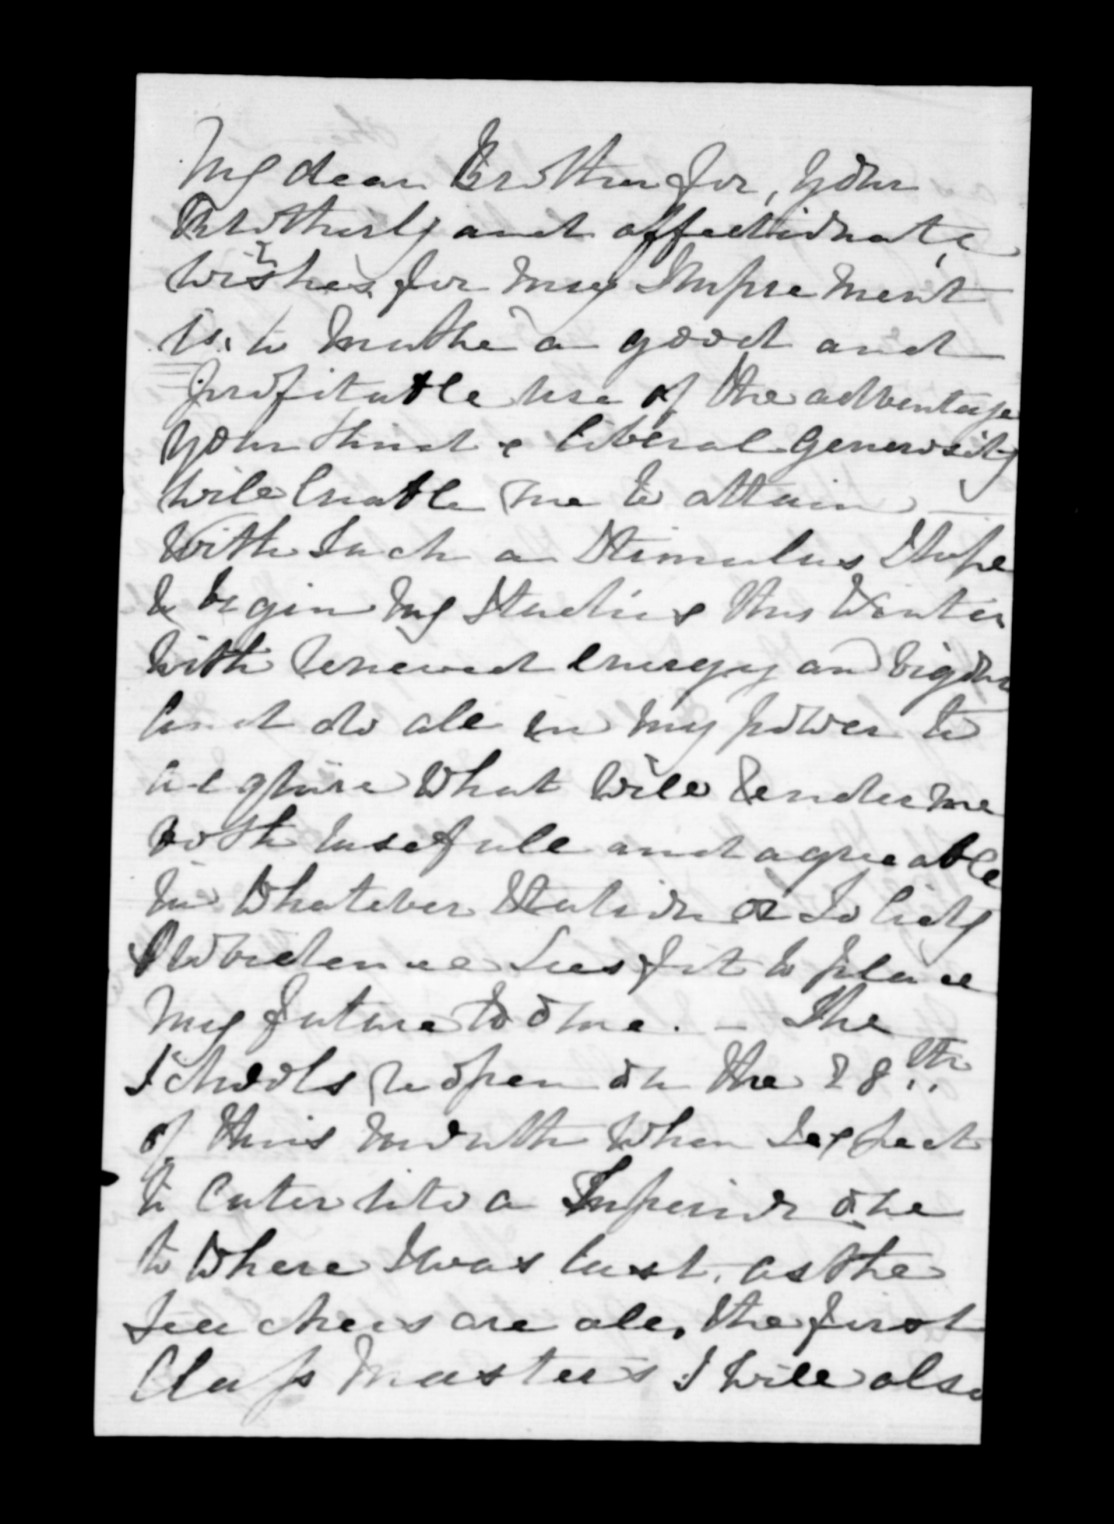 My dear Brother for, your
Brotherly and affectionate,
wishes for my Improement
is, to make a good and
profitable use of the advantage
your kind & liberal generosity
will enable me to attain
With Such a Stimulus I hope
to begin my Studies this Winter
with renewed energy and vigour
and do all in my power to
acquire what will render me
both usefull and agreeable
in whatever Station or Society
Providence sees fit to place
my future to one. - The
Schools reopen on the 28th
of this month when I expect
to enter into a Superior one
to where I was last, as the
Teachers are all, the first
Class Masters I will also